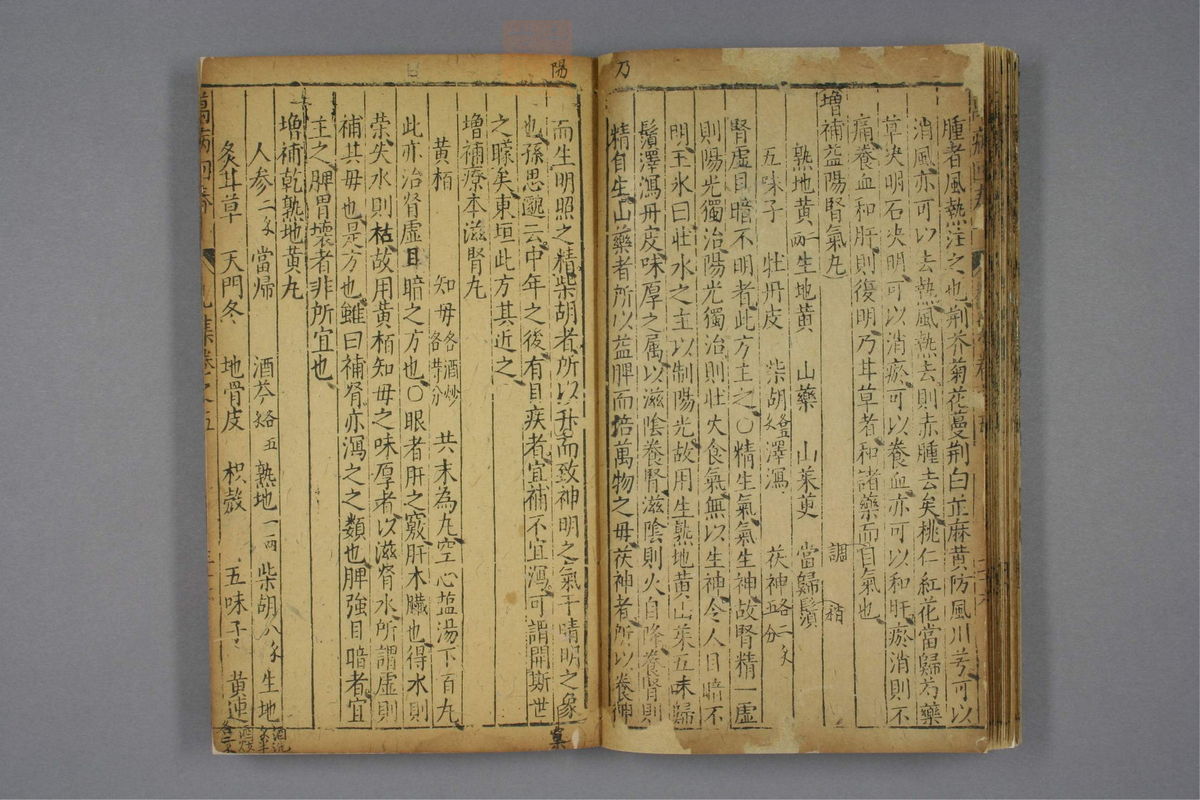 乃
腫者風熱注之也荆芥菊花蔓荆白芷麻黄防風川芎可以
消風亦可以去熱風熱去則赤腫去矣桃仁紅花當歸芍藥
草决明石决明可以消瘀可以養血亦可以和肝瘀消則不
痛養血和肝則復明乃甘草者和諸藥而自氣也
調
稍
增補益陽腎氣丸
熟地黄二兩 生地黄 山藥 山茱萸 當歸鬚
五味子 牡丹皮 柴胡 澤瀉 茯神
腎虛目暗不明者此方主之○精生氣氣生神故腎精一虛
則陽光獨治陽光獨治則壯火食氣無以生神令人目暗不
明王氷曰壯水之主以制陽光故用生熟地黄山茱五味歸
鬚澤瀉丹皮味厚之属以滋陰養腎滋陰則火自降養腎則
精自生山藥者所以益脾而培萬物之母茯神者所以養神
陽
而生明照之精柴胡者所以升而致神明之氣于睛明之象
也孫思邈云中年之後有目疾者宜補不宜瀉可謂開斯世
之矇矣東垣此方其近之
增補療本滋腎丸
黄栢 知母各酒炒各等分 共末為丸空心塩湯下百丸
此亦治腎虛目暗之方也○眼者肝之竅肝木臟也得水則
荣失水則枯故用黄栢知母之味厚者以滋腎水所謂虛則
補其母也是方也雖曰補腎亦瀉之之類也脾強目暗者宜
主之脾胃壊者非所宜也
增補乾熟地黄丸
人参二 當歸 酒芩 熟地一兩 柴胡八 生地
炙甘草 天門冬 地骨皮 枳殼 五味子 黄連
萬病回春